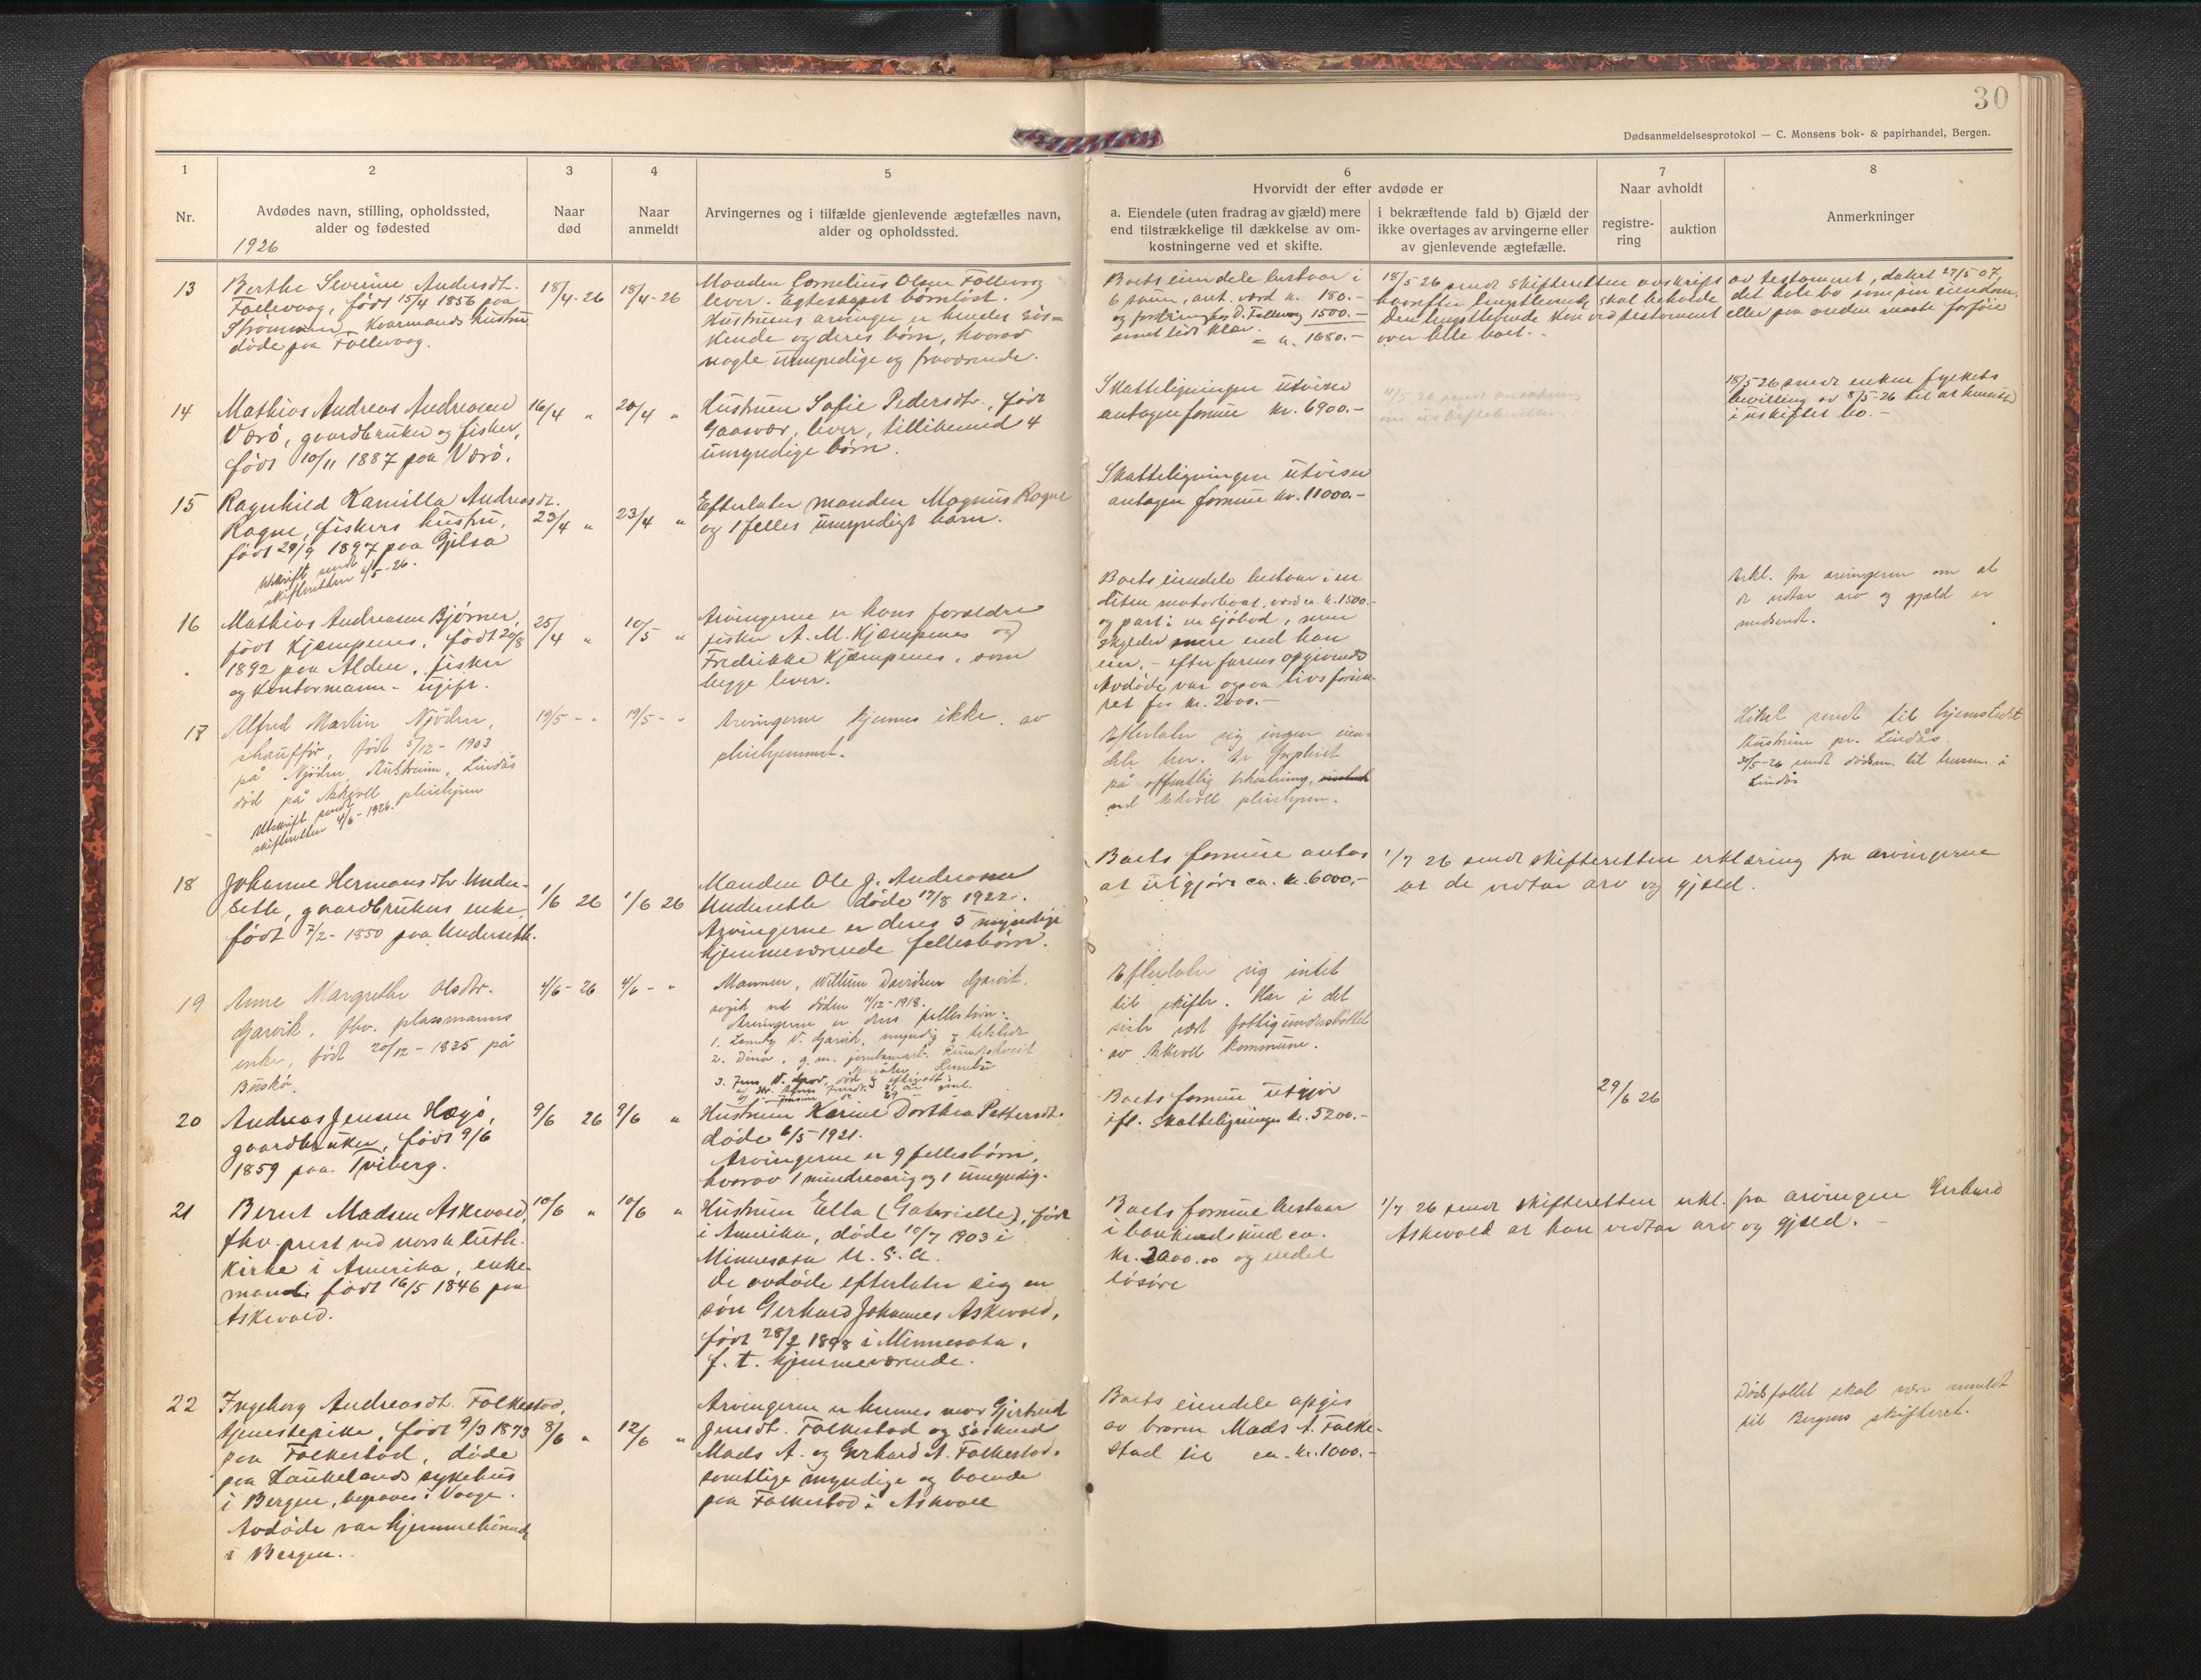 30
Dødsanmeldelsesprotokol — C. Monsens bok- & papirhandel, Bergen.
1
2
3
4
5
6
7
8
Nr.
Avdødes navn, stilling, opholdssted,
alder og fødested
1926
Naar
død
Naar
anmeldt
Arvingernes og i tilfælde gjenlevende ægtefælles navn,
alder og opholdssted.
Hvorvidt der efter avdøde er
a. Eiendele (uten fradrag av gjæld) mere
end tilstrækkelige til dækkelse av om-
kostningerne ved et skifte.
i bekræftende fald b) Gjæld der
ikke overtages av arvingerne eller
av gjenlevende ægtefælle.
Naar avholdt
registre-
ring
auktion
Anmerkninger
13
Berthe Severine Andersdt.
Follevaag, født 15/4 1856 paa
Strømmen, Kvarmands hustru,
døde paa Follevaag.
18/4-26
18/4-26
Manden Cornelius Olsen Follevaag
lever. Egteskapet børnløst.
Hustruens arvinger er hendes søs-
kende og deres børn, hvorav
nogle umyndige og fraværende.
Boets eiendele bestaar i
6 sauer, ant. værd kr. 180.-
og fordring hos D. Follevaag 1500.-
= kr. 1680.-
18/5-26 sendt skifteretten avskrift av testament, datert 27/5 07,
hvorefter længstlevende skal beholde det hele bo som sin eiendom.
Den længstlevende kan ved testament eller paa anden maate forføie
over hele boet. -
14
Mathias Andreas Andreasen
Værø, gaardbruker og fisker,
født 10/11 1887 paa Værø.
16/4 "
20/4 "
Hustruen Sofie Pedersdtr., født
Gaasvær, lever, tillikemed 4
umyndige børn.
Skatteligningen utviser
antagen formue kr. 6900.-
18/5 26 sendt enken fylkets
bevilling av 8/5-26 til at hensitte
i uskiftet bo. -
15
Ragnhild Kamilla Andreasdt.
Ragne, fiskers hustru,
født 29/9 1897 paa Gjelsa
Utskrift sendt
skifteretten 4/5-26.
23/4 "
23/4 "
Efterlater manden Magnus Ragne
og 1 felles umyndigt barn.
Skatteligningen utviser
antagen formue kr. 11000.-
16
Mathias Andreasen Bjørner,
født Kjempenes, født 20/8
1892 paa Alden, fisker
og Kontormann - ugift.
25/4 "
10/5 "
Arvingerne er hans forældre
fisker A. M. Kjempenes og
Fredrikke Kjempenes, som
begge lever.
Boets eiendele bestaar i en
liten motorbaat, værd ca. kr. 1500.-
og part i en sjøbod, men
skylder mere end han
eier, - efter farens opgivende
Avdøde var ogsaa livsforsik-
ret for kr. 2000.-
Erkl. fra arvingerne om at
de vedtar arv og gjæld er
nedsendt.
17
Alfred Martin Njöden,
shauffør, født 5/12 - 1903
på Njöden, Austrheim, Lindås
död på Askvoll pleiehjem
Utskrift sendt
skifteretten 4/6 - 1926.
19/5 - "
19/5 - "
Arvingerne kjennes ikke av
pleiehjemmet.
Efterlater sig ingen eien-
dele her. Er forpleiet
på offentlig bekostning,
ved Askvoll pleiehjem.
Likel sendt til hjemstedet
Austrheim pr. Lindås.
20/5-26 sendt dødsm. til lensm. i
Lindås
18
Johanne Hermansdtr. Under-
sette, gaardbrukers enke,
født 7/2 - 1850 paa Undersette.
1/6 26
1/6 26
Manden Ole J. Andreassen
Undersette døde 17/8 1922.
Arvingerne er deres 5 myndige
hjemmeværende fellesbørn.
Boets formue antas
at utgjøre ca. kr. 6000.-
1/7 26 sendt skifteretten erklæring fra arvingerne
at de vedtar arv og gjæld.
19
Anne Margrethe Olsdtr.
Gjarvik, fhv. plassmanns
enke, født 20/12 - 1835 på
Buskø.
4/6 - 26
4/6 - "
Mannen, Willum Davidsen Gjarvik,
avgik ved døden 11/12 - 1918.
Arvingerne er dere fellesbørn:
Efterlater sig intet
til skifte. Har i det
siste vært fattigunderstøttet
av Askvoll kommune.
20
Andreas Jensen Hægø,
gaardbruker, født 9/6
1859 paa Tviberg.
9/6 26
9/6 "
Hustruen Karine Dorthea Pettersdt.
døde 6/5 1921.
Arvingerne er 9 fellesbørn,
hvorav 1 mindreaarig og 1 umyndig.
Boets formue utgjør
ifl. skatteligningen kr. 5200.-
29/6 26
21
Bernt Madsen Askevold,
fhv. prest ved norsk luth.
kirke i Amerika, enke-
mand, født 16/5 1846 paa
Askevold.
10/6 "
10/6 "
Hustruen Ella (Gabrielle), født
i Amerika, døde 10/7 1903 i
Minnesota U. S. A.
De avdøde efterlater sig en
søn Gerhard Johannes Askevold,
født 28/2 1898 i Minnesota,
f. t. hjemmeværende.
Boets formue bestaar
i bankindskud ca.
kr. 2000.00 og endel
løsøre
1/7 26 sendt skifteretten erkl. fra arvingen Gerhard
Askevold at han vedtar arv og gjæld. -
22
Ingeborg Andreasdt. Folkestad,
tjenestepike, født 9/3 1873
paa Folkestad, døde
paa Haukelands sykehus
i Bergen, begraves i Vaage.
Avdøde var hjemmehørende
i Bergen.
8/6 "
12/6 "
Arvingerne er hennes mor Gjertrud
Jensdt. Folkestad og søskend
Mads A. og Gerhard A. Folkestad.
samtlige myndige og boende
paa Folkestad i Askvoll
Boets eiendele opgis
av broren Mads A. Folke-
stad til ca. kr. 1000.-
Dødsfallet skal være anmeldt
til Bergens skifteret.